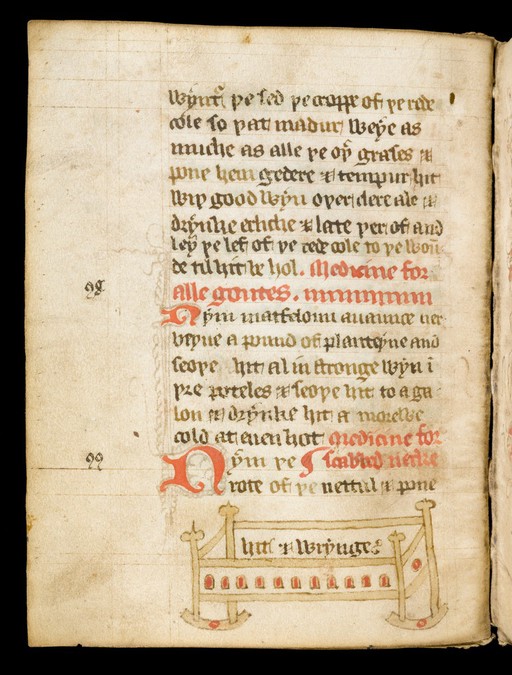 þe sed þe croppe of þe rede
cole so þat madur weye as
muche as alle þe oþ̉ grases &
pone hem gedere & tempur hit
wiþ good wyn oþer clere ale &
drynke erliche & late þer of and
ley þe lef of þe rede cole to þe woū
de til hit be hol. Medicine for
98
alle goutes.
Nym matfeloun auaunce ver
veyne a pound of planteyne and
seoþe hit al in stronge wyn i
þre poteles & seoþe hit to a ga
lon & drynke hit a morewe
cold at euen hot Medicine for
99
Nym þe scabbed necke
rote of þe nettul & pone
hit & wrynge